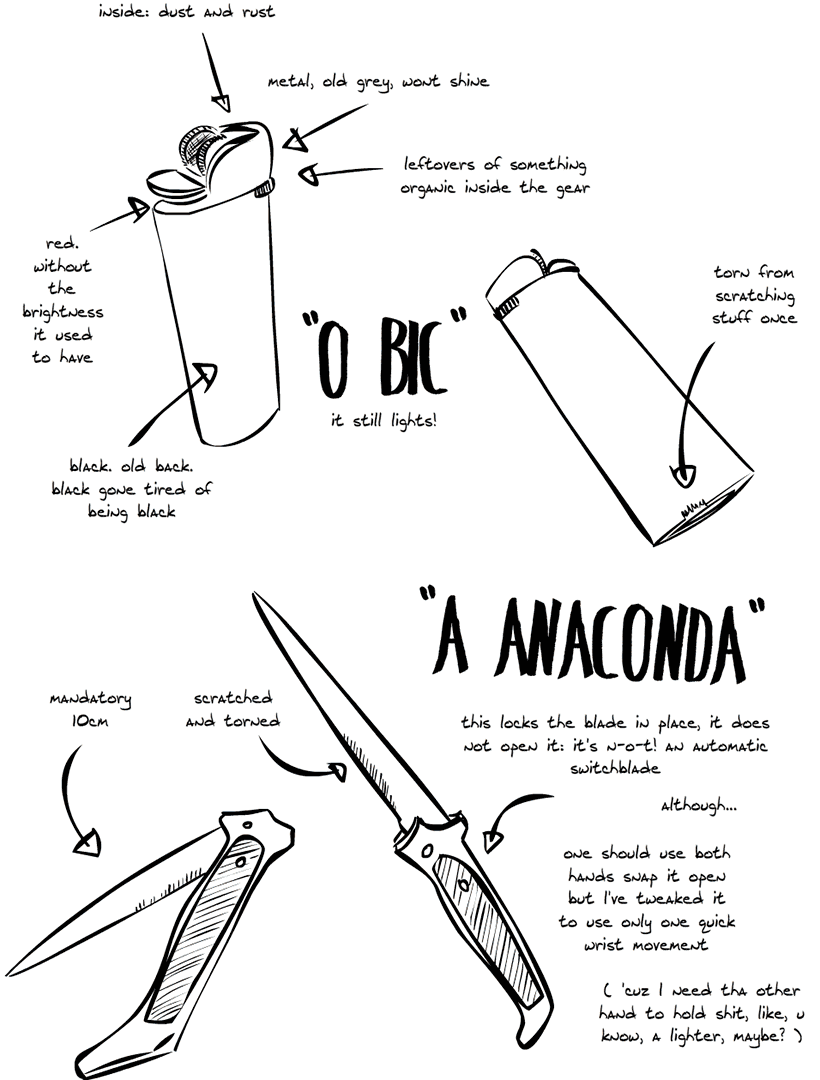 inside: dust and rust
metal, old grey, wont shine
leftovers of something
organic inside the gear
red.
without
the
brightness
it used
to have
torn from
scratching
stuff once
"O BIC"
it still lights!
black. old back.
black gone tired of
being black
"A ANACONDA"
mandatory
10cm
scratched
and torned
this locks the blade in place, it does
not open it: it's n-o-t! an automatic
switchblade
although...
one should use both
hands snap it open
but I've tweaked it
to use only one quick
wrist movement
( 'cuz I need tha other
hand to hold shit, like, u
know, a lighter, maybe? )